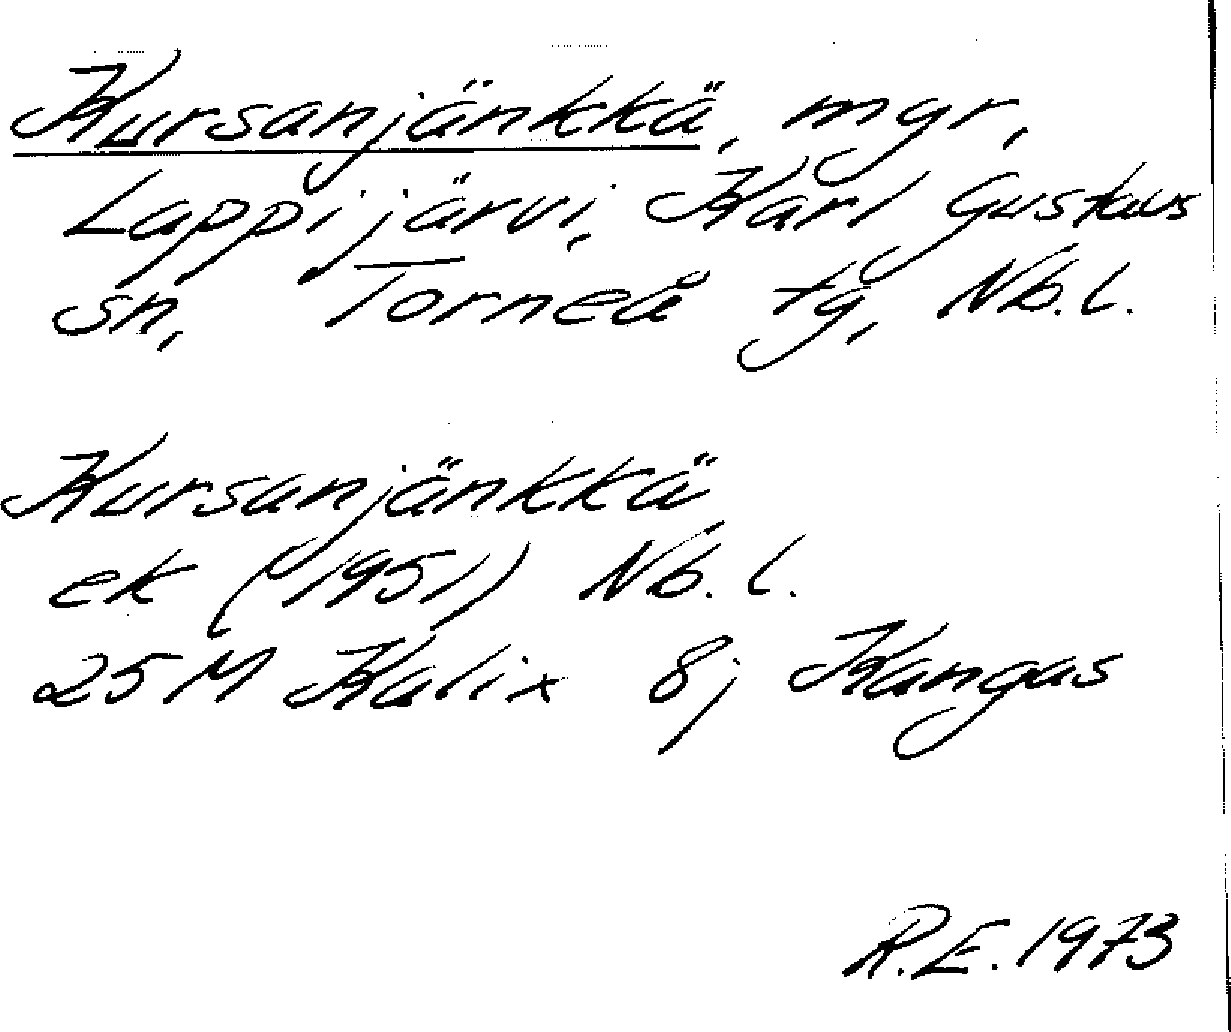 Kursanjänkkä, myr,
Lappijärvi, Karl Gustavs
sn, Torneå tg, Nb.l.
Kursanjänkkä,
ek (1951) Nb.l.
25M Kalix 8j Kangas
R.E. 1973